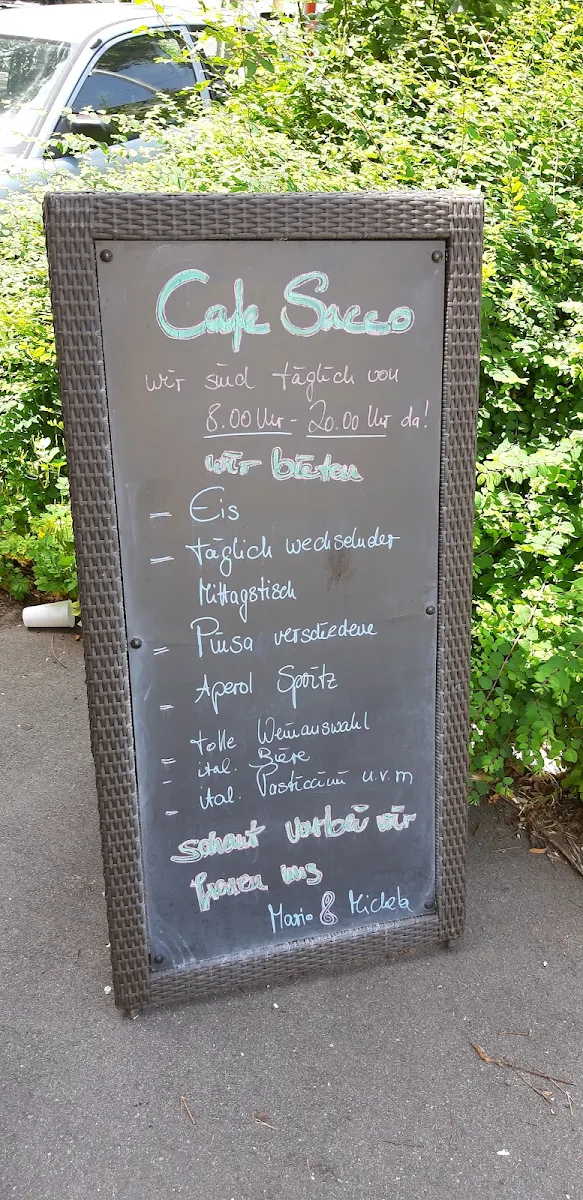 Cafe Sacco
wir sind täglich von
8.00 Uhr - 20.00 Uhr da!
wir bieten
- Eis
- täglich wechselnder
Mittagstisch
- Pinsa verschiedene
- Aperol Spritz
- tolle Weinauswahl
- ital. Biere
- ital. Pasticcini u.v.m
schaut vorbei wir
freuen uns
Mario & Michela